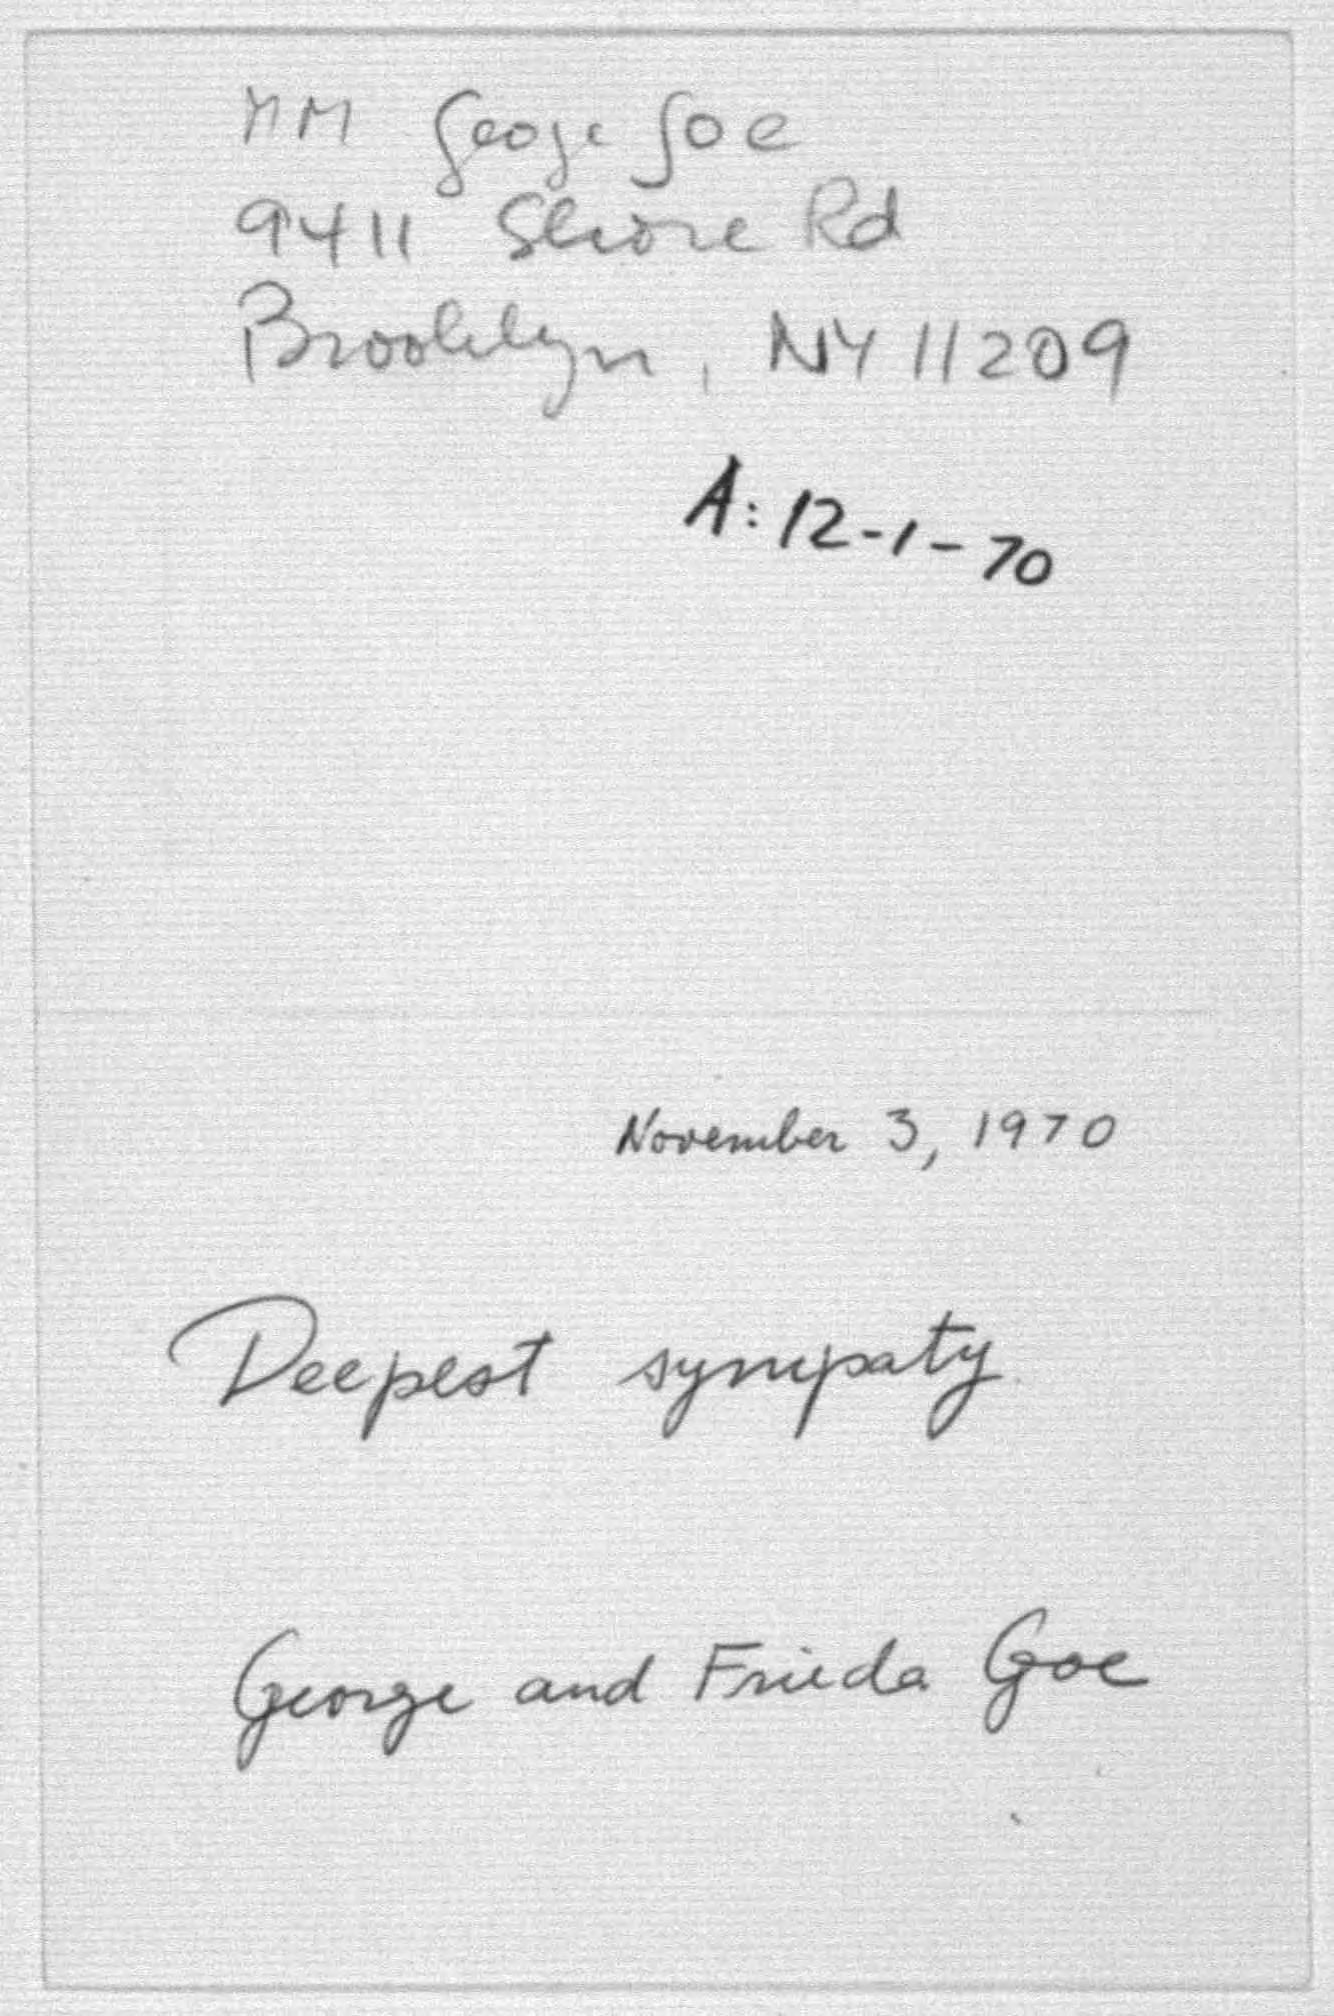 MM George Goe
9411 Shore Rd
Brooklyn, NY 11209
A: 12-1-70
November 3, 1970
Deepest sympaty
George and Frieda Goe